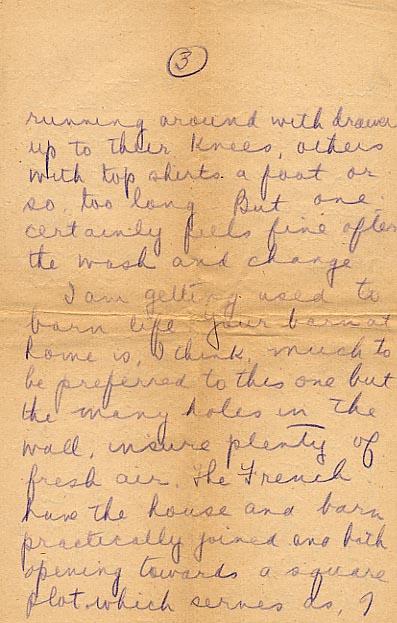 3
running around with drawers
up to their knees, others
with top shirts a foot or
so too long. But one
certainly feels fine after
the wash and change
I am getting used to
barn life. Your barn at
home is, I think, much to
be preferred to this one but
the many holes in the
wall, insure plenty of
fresh air. The French
have the house and barn
practically joined and both
opening towards a square
plot which serves as, I